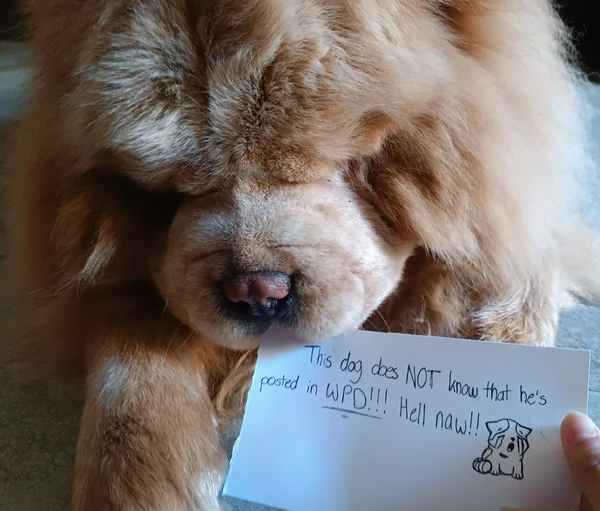 This dog does NOT know that he's
posted in WPD!!! Hell naw!!